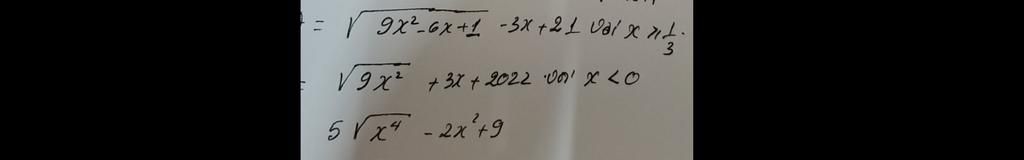 = √9x²-6x+1 -3x+21 với x ≥ 1/3.
= √9x² +3x+2022 với x<0
5√x⁴ -2x²+9